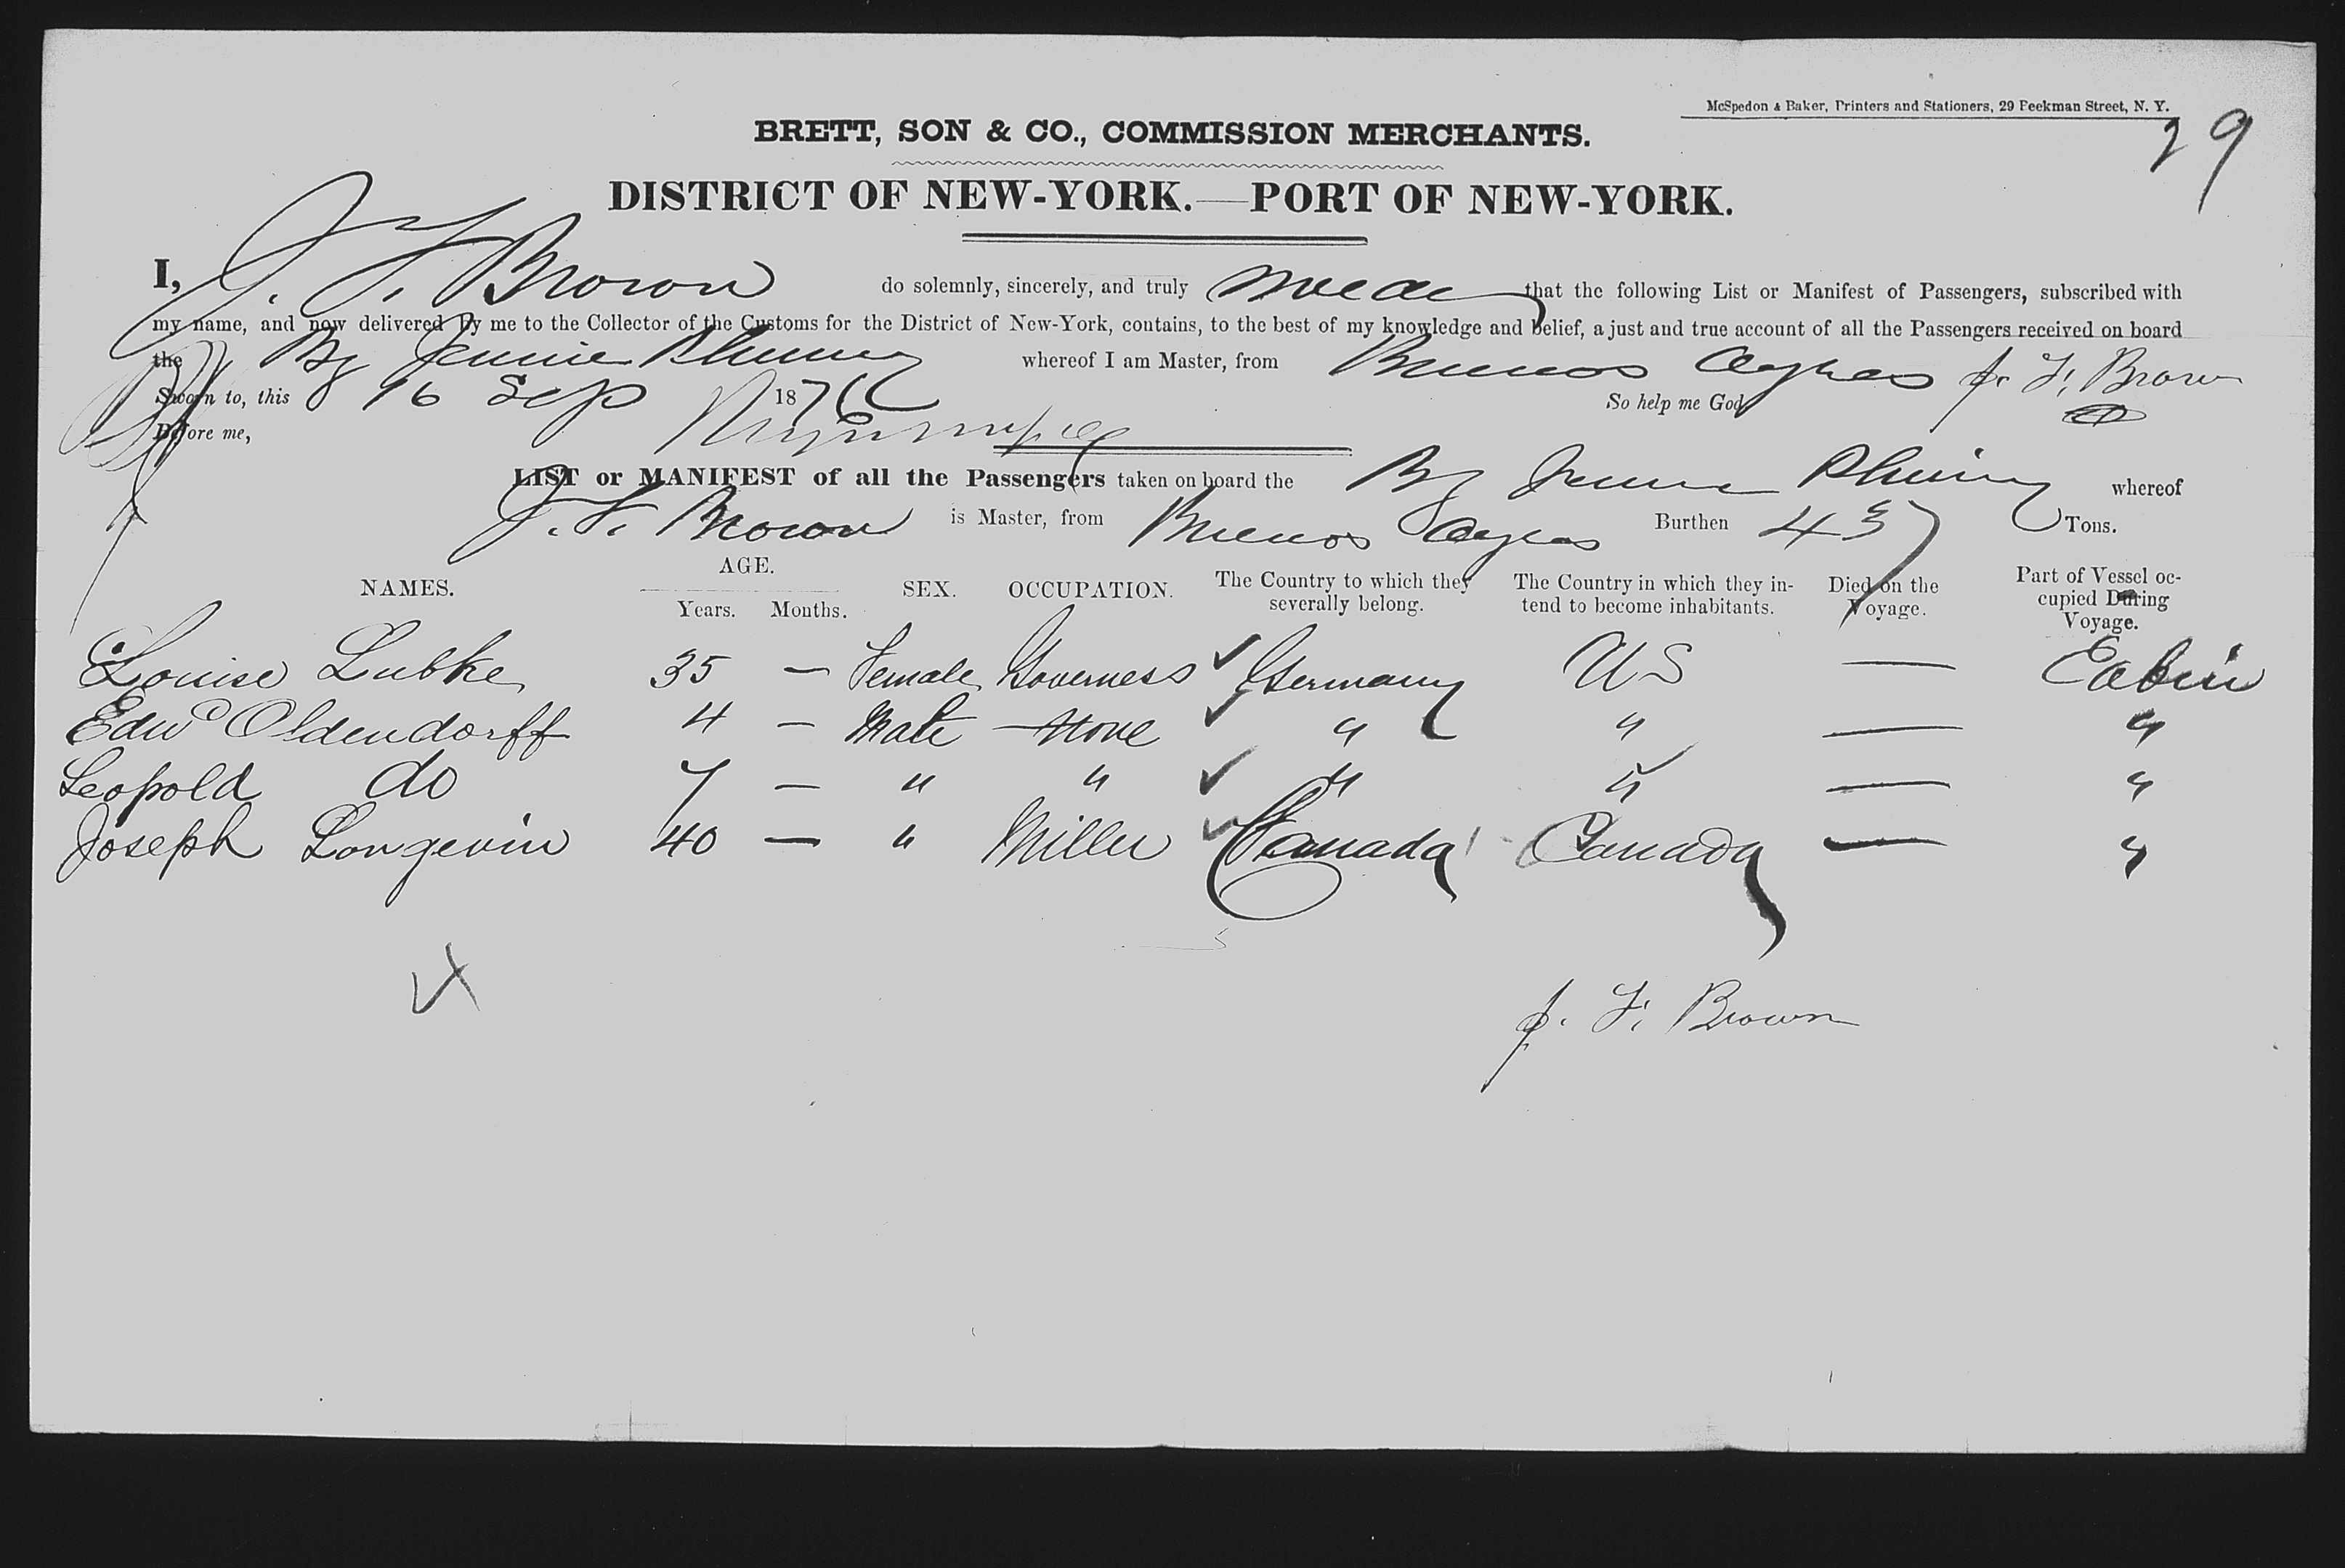 McSpedon & Baker, Printers and Stationers, 29 Beekman Street, N. Y.
29
BRETT, SON & CO., COMMISSION MERCHANTS.
DISTRICT OF NEW-YORK.—PORT OF NEW-YORK.
I, J. F. Brown do solemnly, sincerely, and truly swear that the following List or Manifest of Passengers, subscribed with
my name, and now delivered by me to the Collector of the Customs for the District of New-York, contains, to the best of my knowledge and belief, a just and true account of all the Passengers received on board
the Bg Jennie Phinney whereof I am Master, from Buenos Ayres J. F. Brown
Sworn to, this 16 Sep 1876 So help me God
Before me,
LIST or MANIFEST of all the Passengers taken on board the Bg Jennie Phinney whereof
J. F. Brown is Master, from Buenos Ayres Burthen 437 Tons.
NAMES. AGE. Years. Months. SEX. OCCUPATION. The Country to which they severally belong. The Country in which they intend to become inhabitants. Died on the Voyage. Part of Vessel occupied During Voyage.
Louise Lubke 35 — Female Governess Germany US — Cabin
Edwd Oldendorff 4 — Male None " " — "
Leopold do 7 — " " " " — "
Joseph Langevin 40 — " Miller Canada Canada — "
J. F. Brown